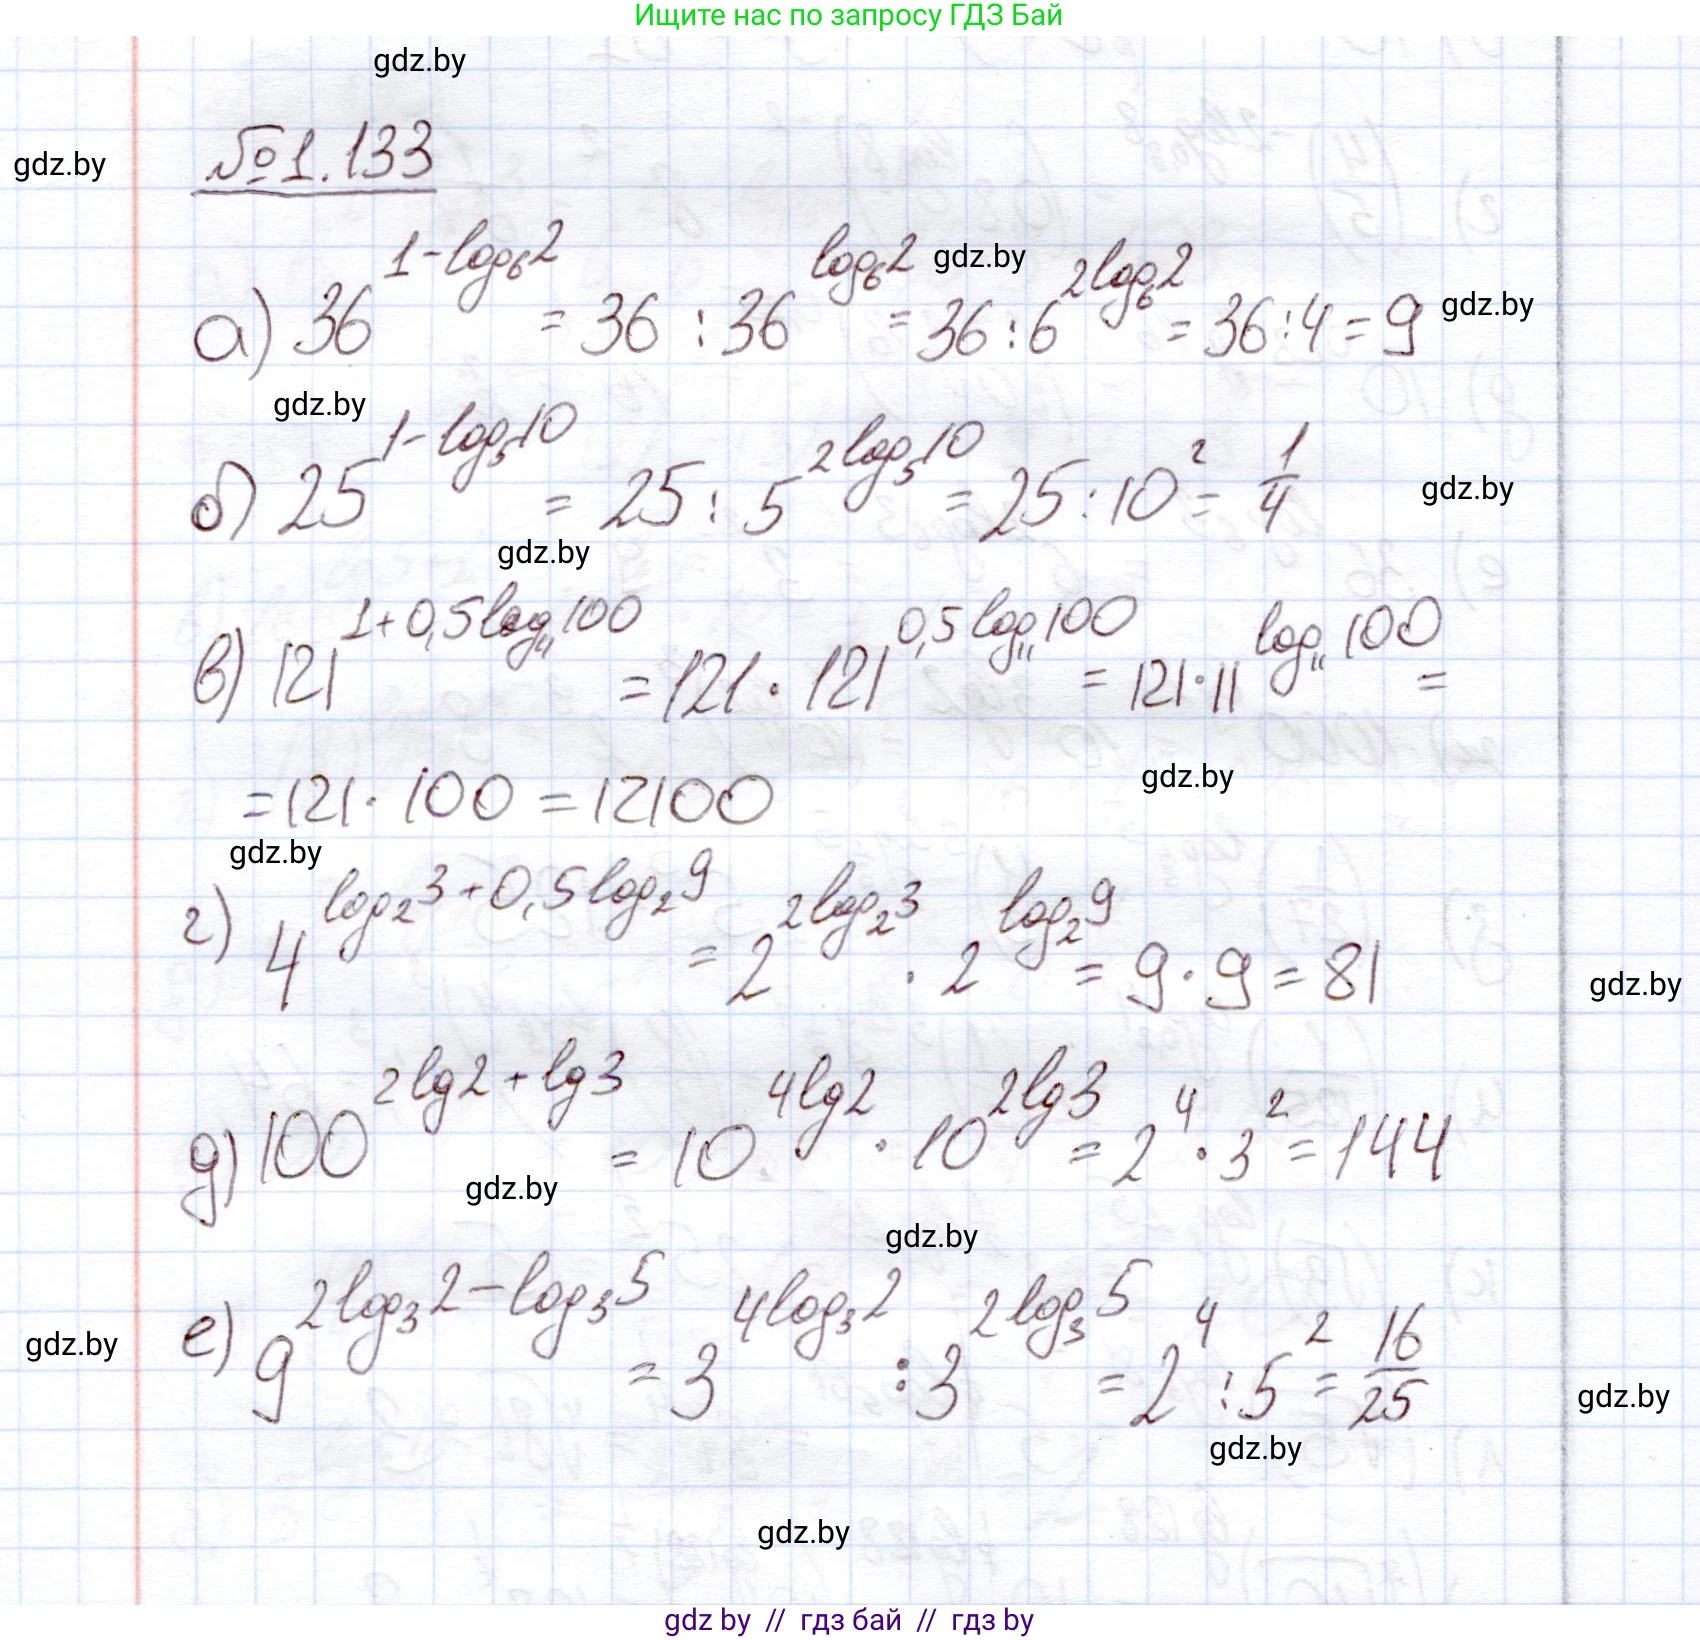 Ищите нас по запросу ГДЗ Бай
gdz.by
№1.133
gdz.by
а) 36^(1-log₆2) = 36 : 36^(log₆2) = 36 : 6^(2log₆2) = 36 : 4 = 9
gdz.by
gdz.by
gdz.by
б) 25^(1-log₅10) = 25 : 5^(2log₅10) = 25 : 10² = 1/4
gdz.by
gdz.by
в) 121^(1+0,5log₁₁100) = 121 · 121^(0,5log₁₁100) = 121 · 11^(log₁₁100) =
= 121 · 100 = 12100
gdz.by
gdz.by
г) 4^(log₂3+0,5log₂9) = 2^(2log₂3) · 2^(log₂9) = 9 · 9 = 81
gdz.by
д) 100^(2lg2+lg3) = 10^(4lg2) · 10^(2lg3) = 2⁴ · 3² = 144
gdz.by
gdz.by
е) 9^(2log₃2-log₃5) = 3^(4log₃2) : 3^(2log₃5) = 2⁴ : 5² = 16/25
gdz.by
gdz.by
gdz.by
gdz.by
gdz by // гдз бай // гдз by